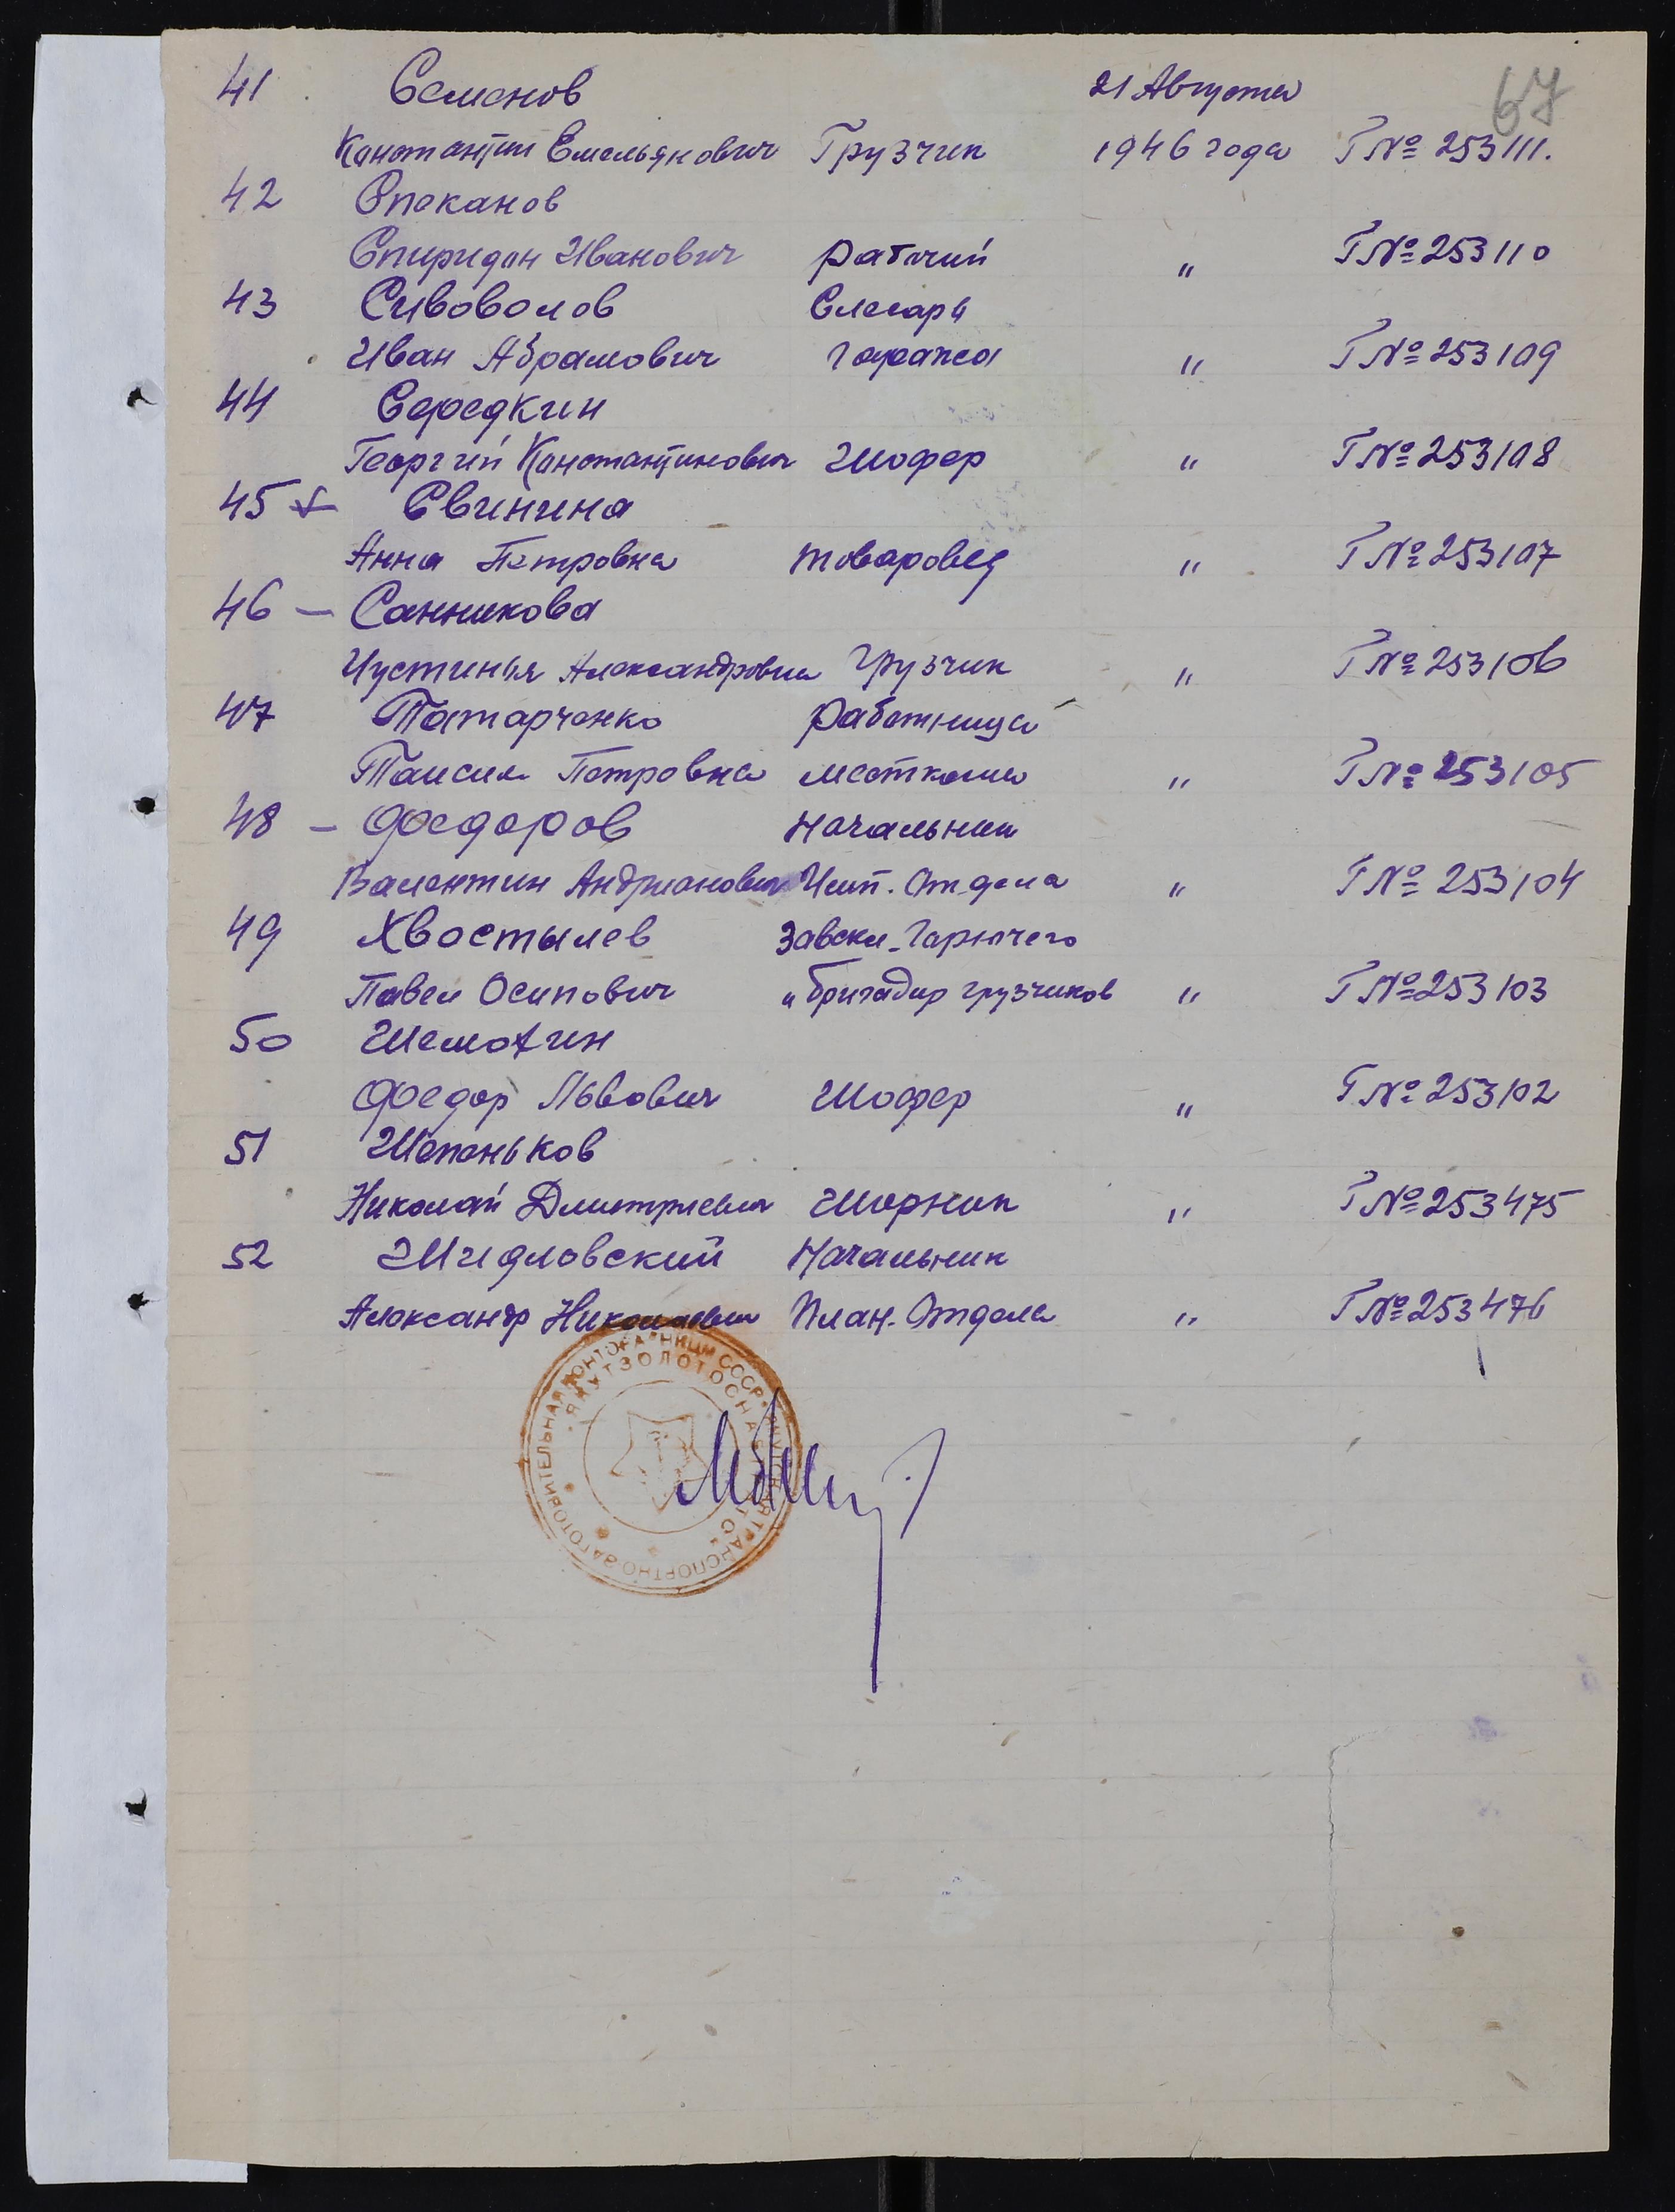 67
41 Семенов 21 Августа
Константин Емельянович Грузчик 1946 года Т№ 253111.
42 Спеканов
Спиридон Иванович рабочий " Т№ 253110
43 Сивоволов Слесарь
Иван Абрамович гаража " Т№ 253109
44 Середкин
Георгий Константинович Шофер " Т№ 253108
45 + Свинина
Анна Петровна товаровед " Т№ 253107
46 — Санникова
Иустинья Александровна Грузчик " Т№ 253106
47 Татарченко работница
Таисия Петровна месткома " Т№ 253105
48 – Федоров Начальник
Валентин Андрианович Отдела " Т№ 253104
49 Хвостылев Завскл. Горючего
Павел Осипович и бригадир грузчиков " Т№ 253103
50 Шемохин
Федор Львович Шофер " Т№ 253102
51 Шепеньков
Николай Дмитриевич Шорник " Т№ 253475
52 Шидловский Начальник
Александр Николаевич План. Отдела " Т№ 253476
ТРАНСПОРТНО-ЗАГОТОВИТЕЛЬНАЯ КОНТОРА НКЦМ СССР
ЯКУТЗОЛОТОСНАБ